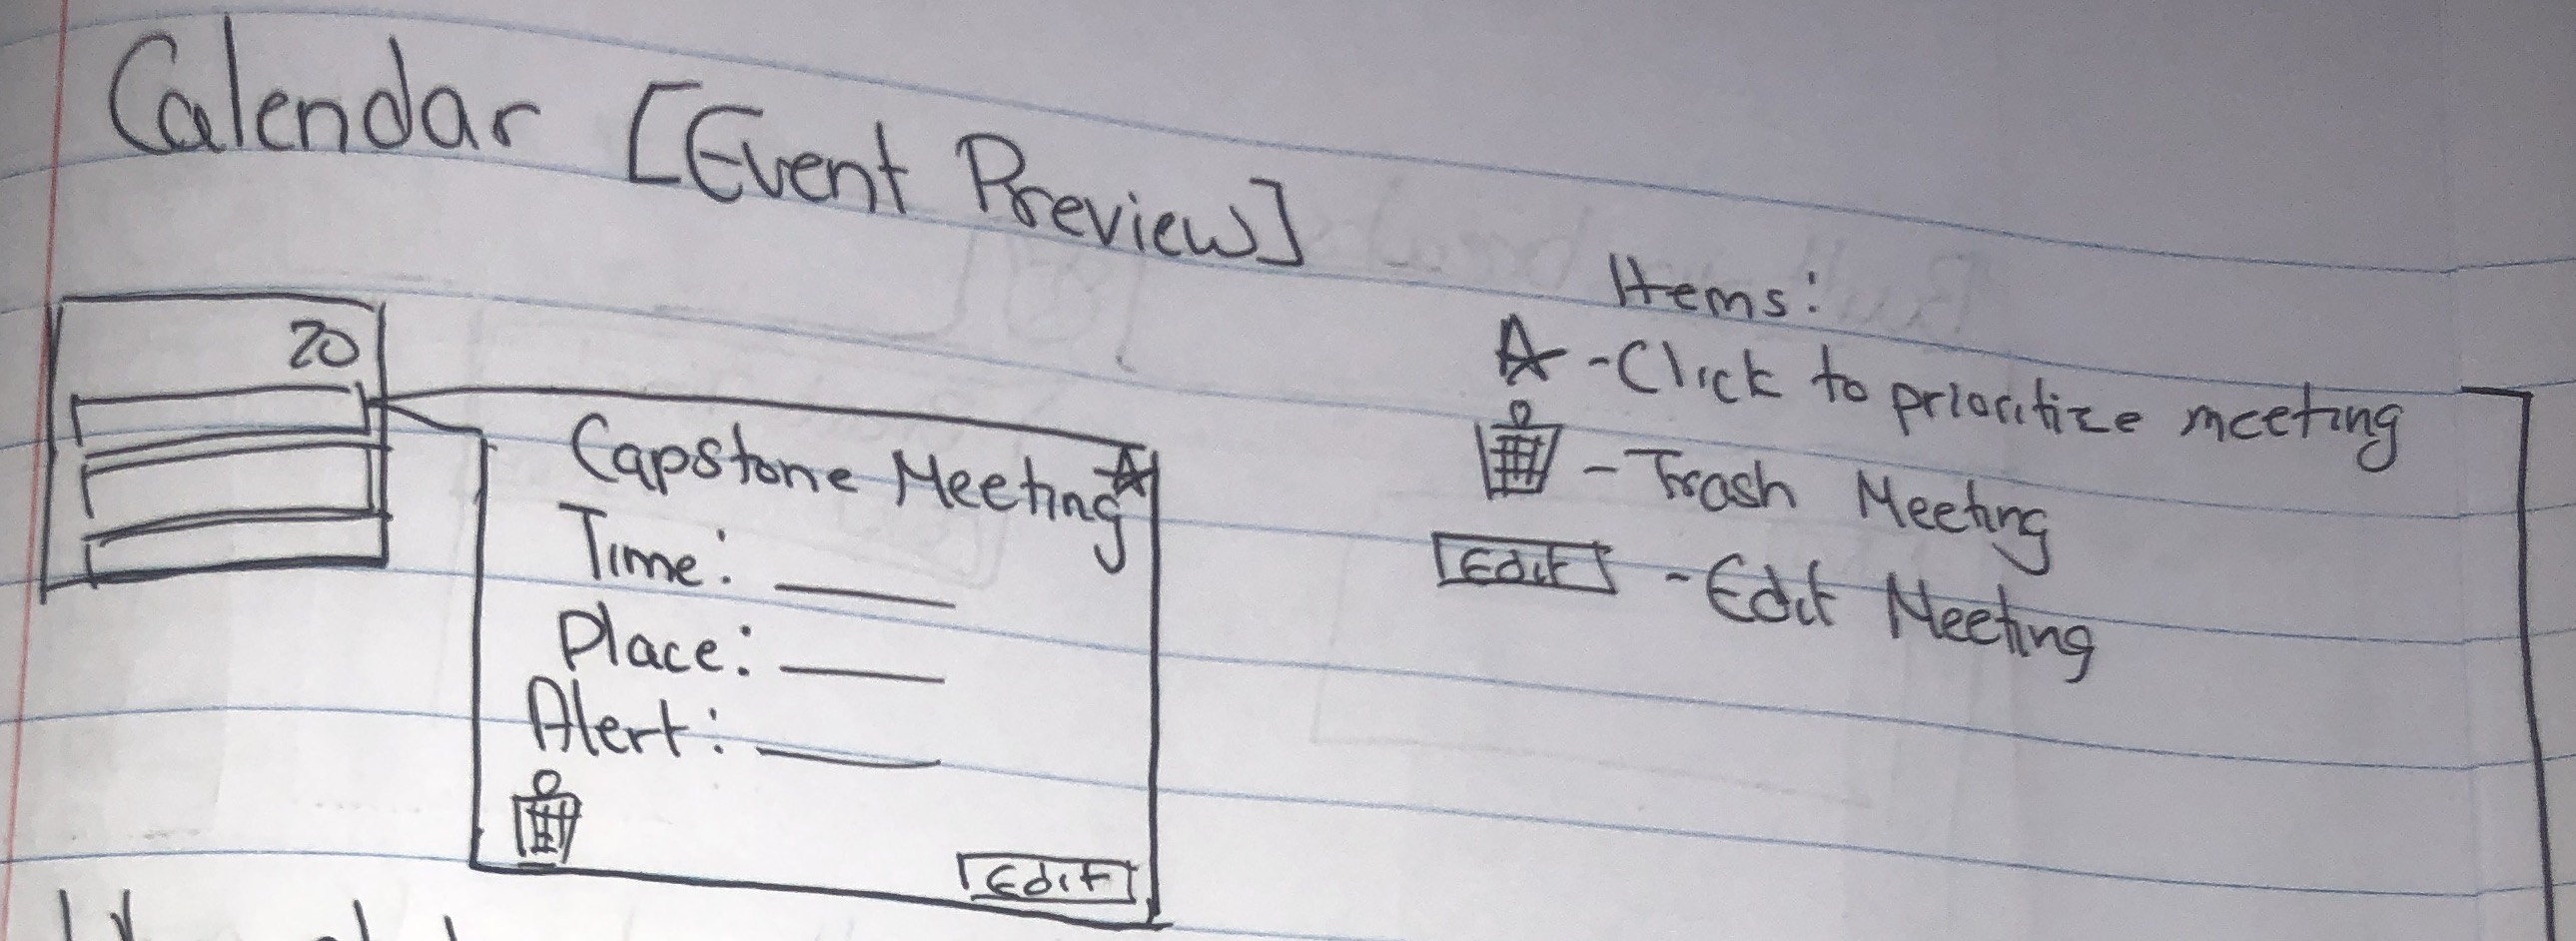 Calendar [Event Preview]
20
Capstone Meeting
Time:
Place:
Alert:
Edit
Items:
-Click to prioritize meeting
- Trash Meeting
Edit - Edit Meeting